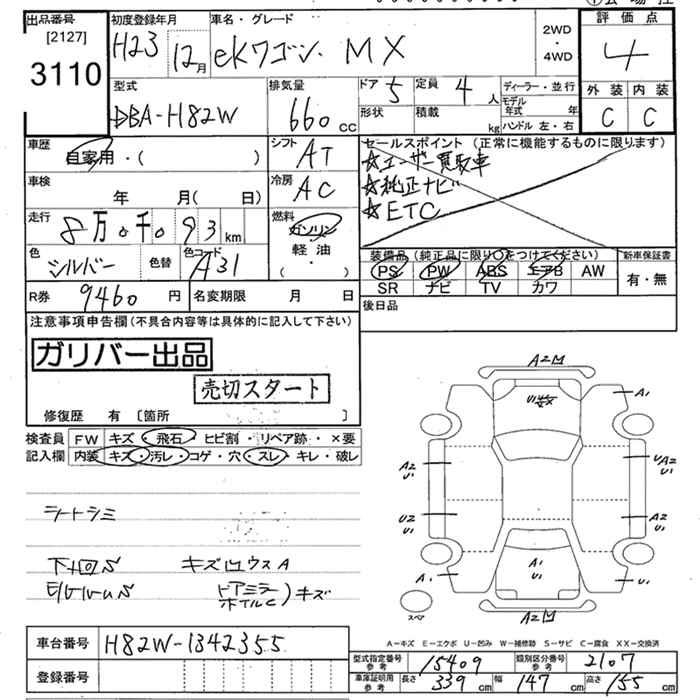 出品番号
[2127]
3110
初度登録年月
H23 12月
車名・グレード
ekワゴン MX
2WD
・
4WD
評価点
4
外装 内装
C C
型式
DBA-H82W
排気量
660 cc
ドア 5
定員 4 人
形状
積載 kg
ディーラー・並行
モデル年式 年
ハンドル 左・右
車歴
自家用・( )
シフト
AT
セールスポイント (正常に機能するものに限ります)
☆ユーザー買取車
☆純正ナビ
☆ETC
車検
年 月( 日)
冷房
AC
走行
8万0千093 km
燃料
ガソリン
軽油
・
( )
色
シルバー
色替
色コード
A31
装備品 (純正品に限り○をつけてください)
PS PW ABS エアB AW
SR ナビ TV カワ
新車保証書
有・無
R券 9460 円
名変期限 月 日
後日品
注意事項申告欄(不具合内容等は具体的に記入して下さい)
ガリバー出品
売切スタート
修復歴 有 [箇所 ]
検査員
記入欄
FW キズ・飛石・ヒビ割・リペア跡・ ×要
内装 キズ・汚レ・コゲ・穴・スレ・キレ・破レ
シートシミ
下回りS
キズ凹ウスA
ドアミラー
ホイルC
)キズ
A2凹
U1数
A1
A2
U1
UA2
U1
U2
U1
A2
U1
A1
A1
U1
スペア
A2凹
A-キズ E-エクボ U-凹み W-補修跡 S-サビ C-腐食 XX-交換済
車台番号 H82W-1342355
登録番号
型式指定番号 参考 15409
類別区分番号 参考 2107
車庫証明用 参考 長さ 339 cm 幅 147 cm 高さ 155 cm